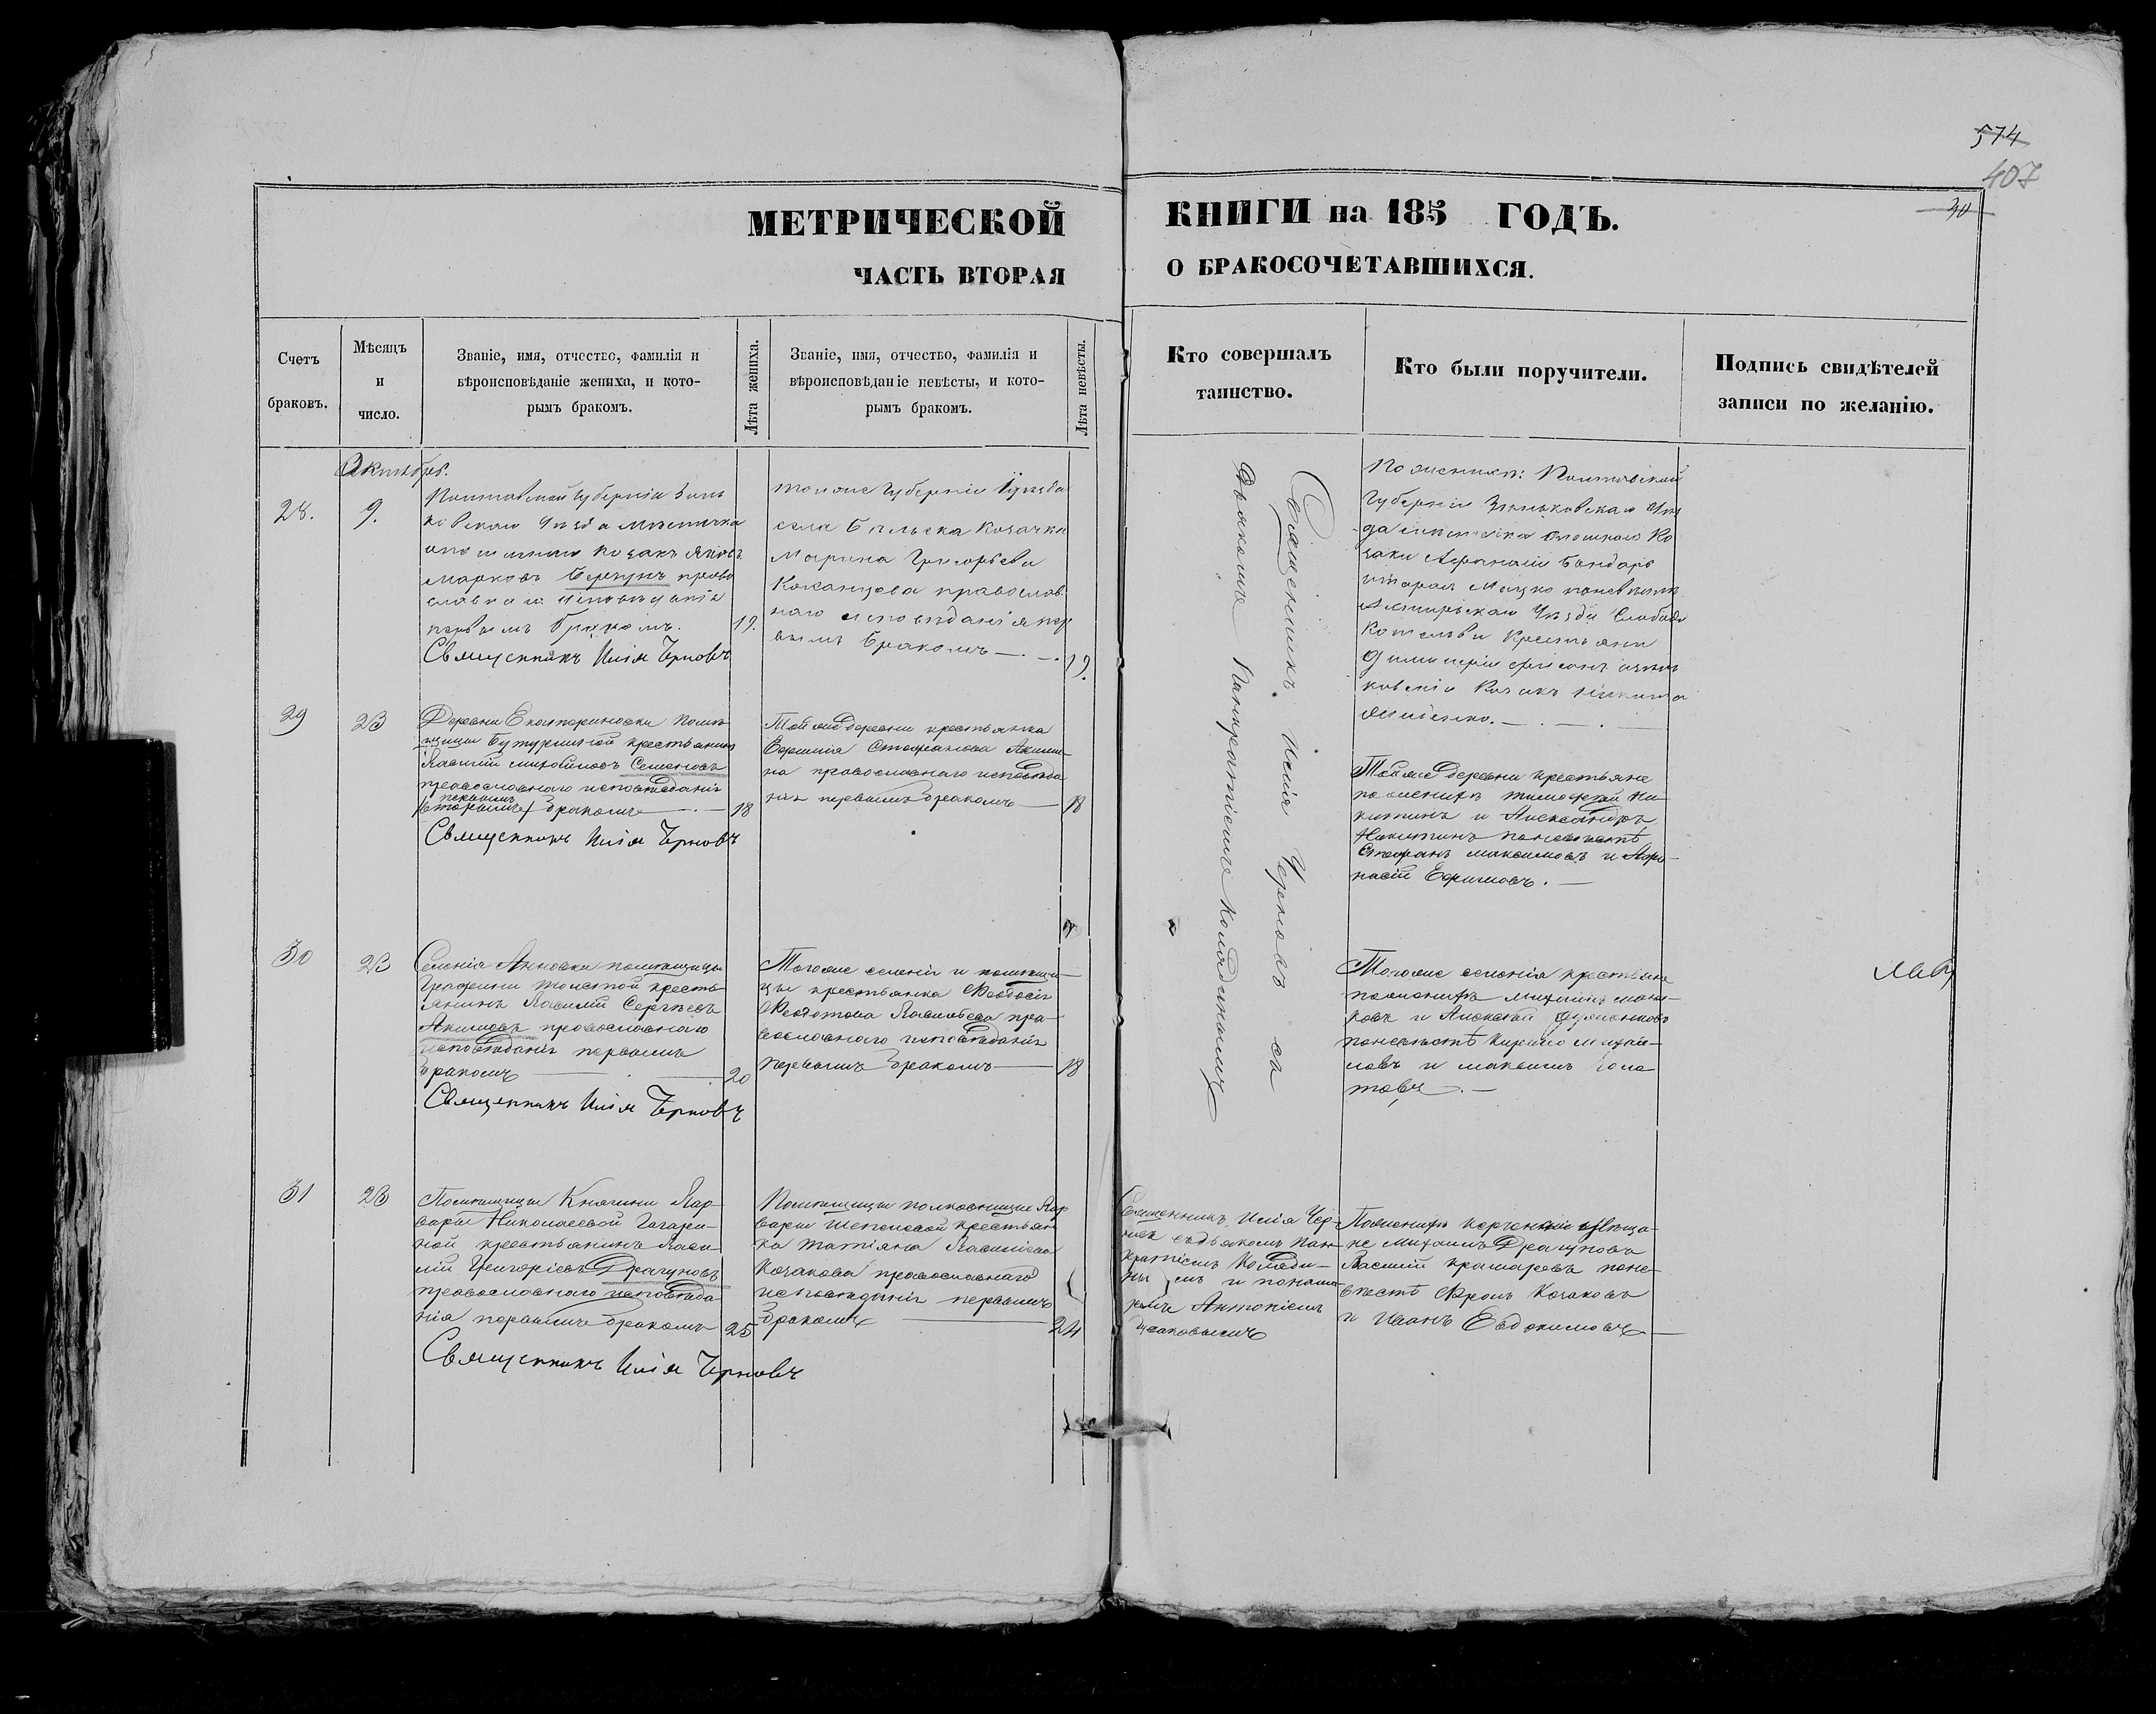 574
407
30
МЕТРИЧЕСКОЙ КНИГИ на 185 ГОДЪ.
ЧАСТЬ ВТОРАЯ О БРАКОСОЧЕТАВШИХСЯ.
Счетъ браковъ.
Мѣсяцъ и число.
Званіе, имя, отчество, фамилія и
вѣроисповѣданіе жениха, и кото-
рымъ бракомъ.
Лѣта жениха.
Званіе, имя, отчество, фамилія и
вѣроисповѣданіе невѣсты, и кото-
рымъ бракомъ.
Лѣта невѣсты.
Кто совершалъ
таинство.
Кто были поручители.
Подпись свидѣтелей
записи по желанію.
Октября.
28.
9.
Полтавской губерніи Зинь
ковскаго Уѣзда мѣстечка
козакъ Яковъ
Марковъ право
славнаго исповѣданія
первымъ бракомъ.
19.
Священникъ Илія Черновъ
тойже Губерніи Уѣзда
села Бѣльска Козачка
Марина Григорьева
православ
наго исповѣданія пер
вымъ бракомъ
19.
Священникъ Илія Черновъ съ
дьякомъ Панкратіемъ Колядинымъ
По женихѣ: Полтавской
Губерніи Зѣньковскаго Уѣз
да мѣстечка Ко
заки Афанасій Бондарь
по невѣстѣ
Ахтырскаго Уѣзда Слободы
Котельвы Крестьяне
Димитрій зѣнь
ковскій Козакъ Никита
29
23
Деревни Екатериновки помѣ
щицы Бутурлиной крестьянинъ
Василій Михайловъ Семеновъ
православнаго исповѣданія
первымъ
(вторымъ) бракомъ
18
Священникъ Илія Черновъ
Той же деревни крестьянка
Ефимія Стефанова Акими-
на православнаго исповѣда
нія первымъ бракомъ
18
Той же деревни крестьяне
по женихѣ Тимофей Ни-
китинъ и Александръ
Никитинъ по невѣстѣ
Стефанъ Максимовъ и Афа-
насій Ефимовъ.
30
23
Селенія Анновки помѣщицы
Графини Толстой кресть-
янинъ Василій Сергѣевъ
Акимовъ православнаго
исповѣданія первымъ
бракомъ
20
Священникъ Илія Черновъ
Того же селенія и помѣщи-
цы крестьянка Ѳеодосія
Ѳедотова Васильева пра-
вославнаго исповѣданія
первымъ бракомъ
18
Того же селенія крестьяне
по женихѣ Михаилъ
и Алексѣй
по невѣстѣ Кирило Михай-
ловъ и Максимъ
31
23
Помѣщицы Княгини Вар-
вары Николаевой Гагари-
ной крестьянинъ Васи-
лій Григоріевъ Драгуновъ
православнаго исповѣда-
нія первымъ бракомъ
25
Священникъ Илія Черновъ
Помѣщицы полковницы Вар
вары Шепелевой крестьян
ка Татіяна Василіева
Козакова православнаго
исповѣданія первымъ
бракомъ
24
Священникъ Илія Чер-
новъ съ дьякомъ Пан-
кратіемъ Коляди-
нымъ и понама-
ремъ Антоніемъ
По женихѣ
не Михаилъ Драгуновъ
Василій по не-
вѣстѣ Фролъ Козаковъ
и Иванъ Евдокимовъ